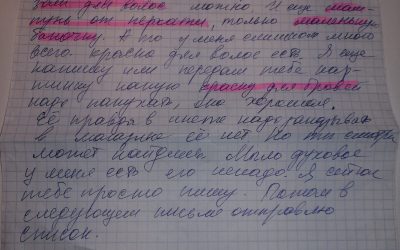 зам для волос можно. И ещё шам-
пунь от перхоти, только маленькую
баночку. А то у меня слишком много
всего краска для волос есть. Я ещё
напишу или передам тебе кар-
тинку какую краску для бровей
надо покупать, она хорошая.
Её правда в инете надо заказывать
в магазине её нет. Но ты смотри
может найдёшь. Мыло духовое
у меня есть его ненадо. Я сейчас
тебе просто пишу. Потом в
следующем письме отправлю
список.